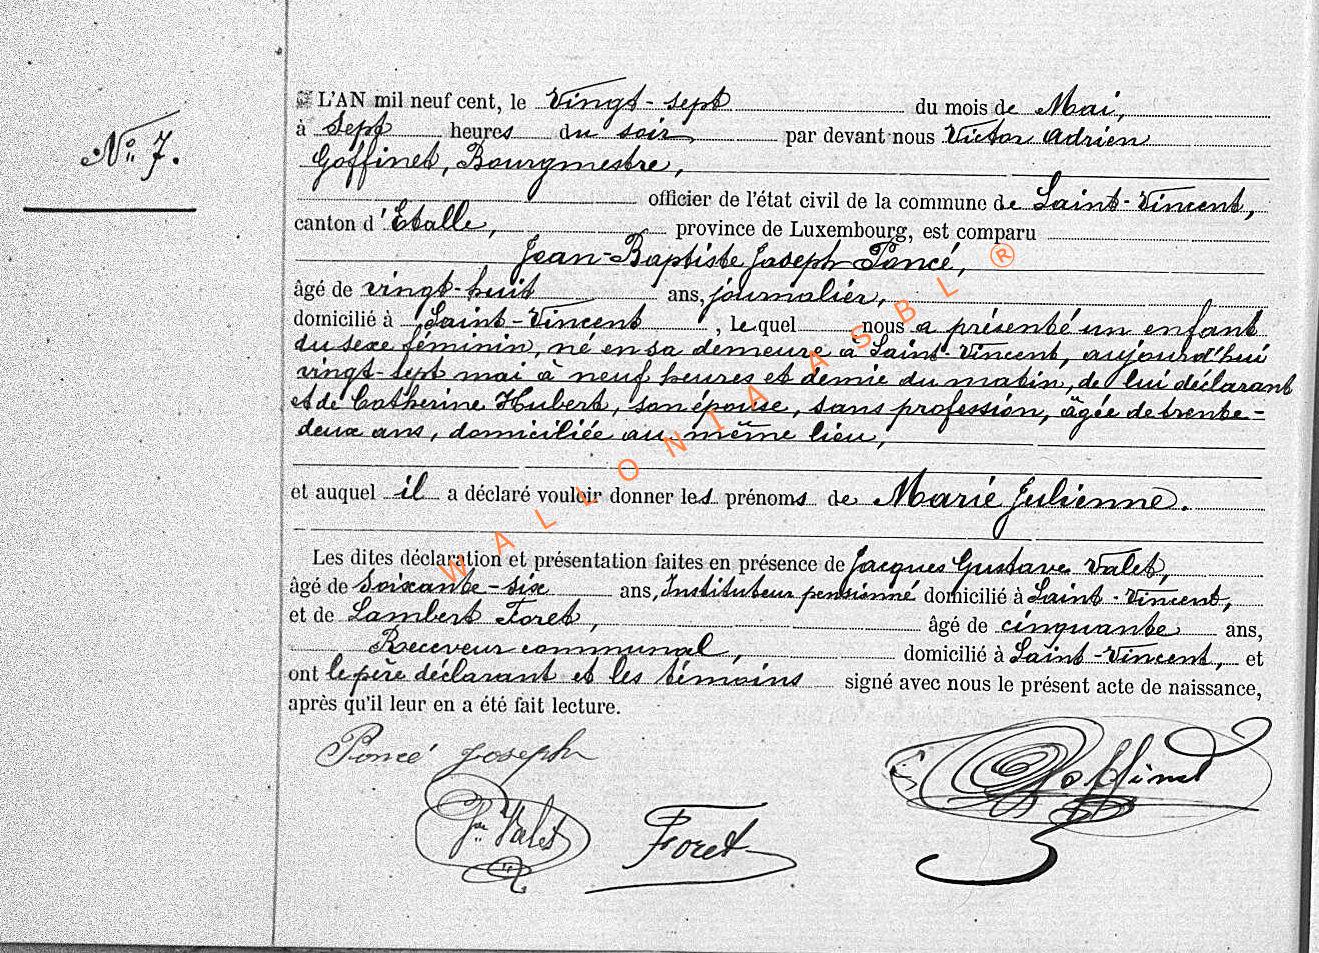 N° 7.
L'AN mil neuf cent, le Vingt-sept du mois de Mai,
à Sept heures du soir, par devant nous Victor Adrien
Goffinet, Bourgmestre,
officier de l'état civil de la commune de Saint-Vincent,
canton d'Etalle, province de Luxembourg, est comparu
Jean-Baptiste Joseph Poncé,
âgé de vingt-huit ans, journalier,
domicilié à Saint-Vincent, lequel nous a présenté un enfant
du sexe féminin, né en sa demeure à Saint-Vincent, aujourd'hui
vingt-sept mai à neuf heures et demie du matin, de lui déclarant
et de Catherine Hubert, son épouse, sans profession, âgée de trente-
deux ans, domiciliée au même lieu,
et auquel il a déclaré vouloir donner les prénoms de Marie Julienne.
Les dites déclaration et présentation faites en présence de Jacques Gustave Valet,
âgé de Soixante-six ans, Instituteur pensionné domicilié à Saint-Vincent,
et de Lambert Foret, âgé de cinquante ans,
Receveur communal, domicilié à Saint-Vincent, et
ont le père déclarant et les témoins signé avec nous le présent acte de naissance,
après qu'il leur en a été fait lecture.
Poncé Joseph
Goffinet
Valet
Foret
WALLONIA ASBL ®